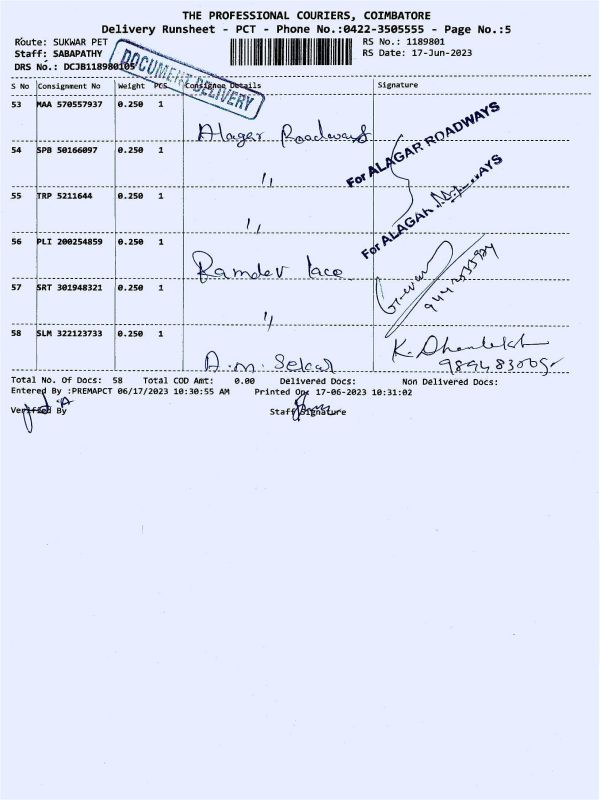 THE PROFESSIONAL COURIERS, COIMBATORE
Delivery Runsheet - PCT - Phone No.:0422-3505555 - Page No.:5
Route: SUKWAR PET
RS No.: 1189801
Staff: SABAPATHY
RS Date: 17-Jun-2023
DRS No.: DCJB118980105
DOCUMENT DELIVERY
S No Consignment No Weight PCS Consignee Details Signature
53 MAA 570557937 0.250 1
Alagar Roadways
For ALAGAR ROADWAYS
54 SPB 50166097 0.250 1
"
55 TRP 5211644 0.250 1
"
For ALAGAR ROADWAYS
56 PLI 200254859 0.250 1
Ramdev lace
57 SRT 301948321 0.250 1
"
58 SLM 322123733 0.250 1
A.m. Sekar
Total No. Of Docs: 58 Total COD Amt: 0.00 Delivered Docs: Non Delivered Docs:
Entered By :PREMAPCT 06/17/2023 10:30:55 AM Printed On: 17-06-2023 10:31:02
Verified By Staff Signature